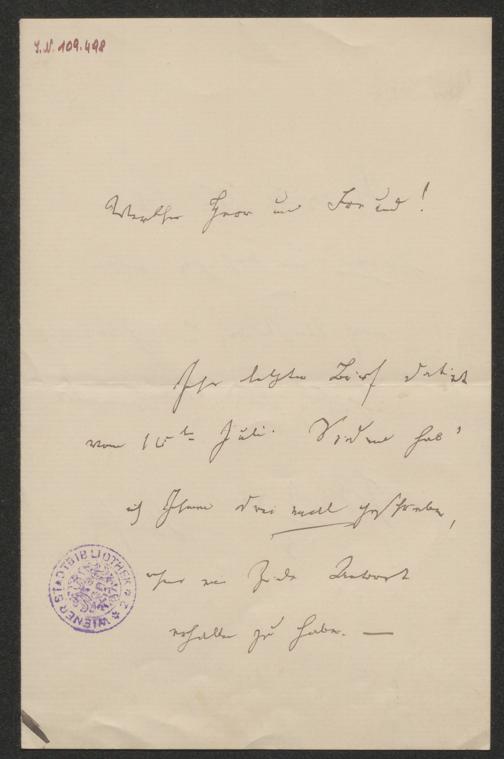 I.N. 109.498
Werther Herr und Freund!
Ihr letzter Brief datirt
vom 15ten Juli. Seitdem hab'
ich Ihnen drei mal geschrieben,
ohne eine Antwort
erhalten zu haben. —
WIENER STADTBIBLIOTHEK